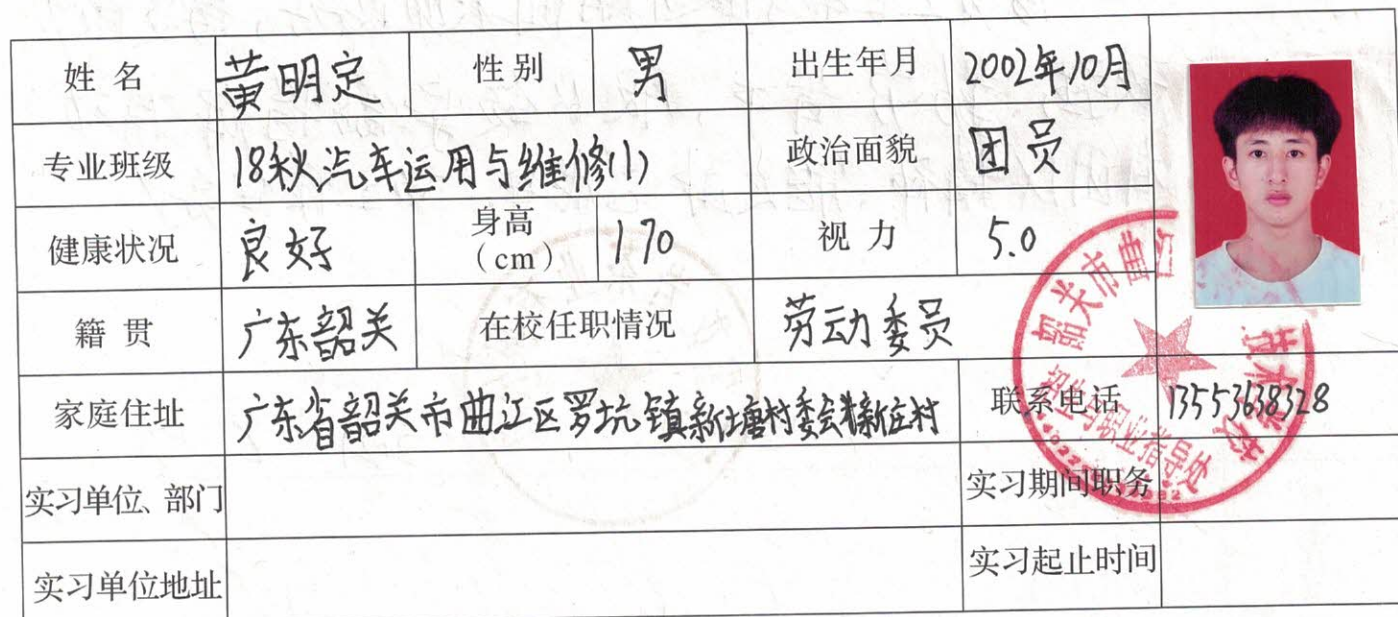 姓 名 黄明定 性别 男 出生年月 2002年10月
专业班级 18秋汽车运用与维修(1) 政治面貌 团员
健康状况 良好 身高（cm） 170 视 力 5.0
籍 贯 广东韶关 在校任职情况 劳动委员
家庭住址 广东省韶关市曲江区罗坑镇新塘村委会新庄村 联系电话 13553638328
实习单位、部门 实习期间职务
实习单位地址 实习起止时间
韶关市曲 技术学校
职业指导